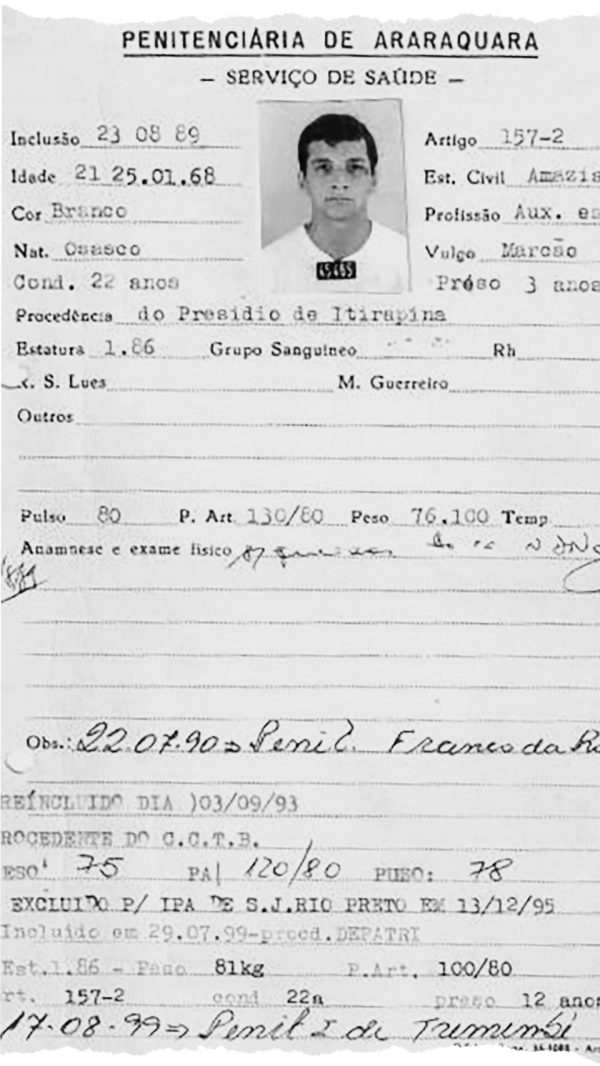 PENITENCIÁRIA DE ARARAQUARA
— SERVIÇO DE SAÚDE —
Inclusão 23 08 89
Artigo 157-2
Idade 21 25.01.68
Est. Civil Amazia
Cor Branco
Profissão Aux. e
Nat. Osasco
Vulgo Marcão
45465
Cond. 22 anos
Préso 3 anos
Procedência do Presidio de Itirapina
Estatura 1.86 Grupo Sanguineo Rh
S. Lues M. Guerreiro
Outros
Pulso 80 P. Art. 130/80 Peso 76.100 Temp
Anamnese e exame físico
Obs.: 22.07.90 => Penit. Franco da Ro
REÍNCLUIDO DIA )03/09/93
ROCEDENTE DO C.C.T.B.
ESO' 75 PA| 120/80 PUSO: 78
EXCLUIDO P/ IPA DE S.J.RIO PRETO EM 13/12/95
Incluido em 29.07.99-proced.DEPATRI
Est.1.86 - Peso 81kg P.Art. 100/80
rt. 157-2 cond 22a preso 12 anos
17-08-99 => Penit I de Tremembé